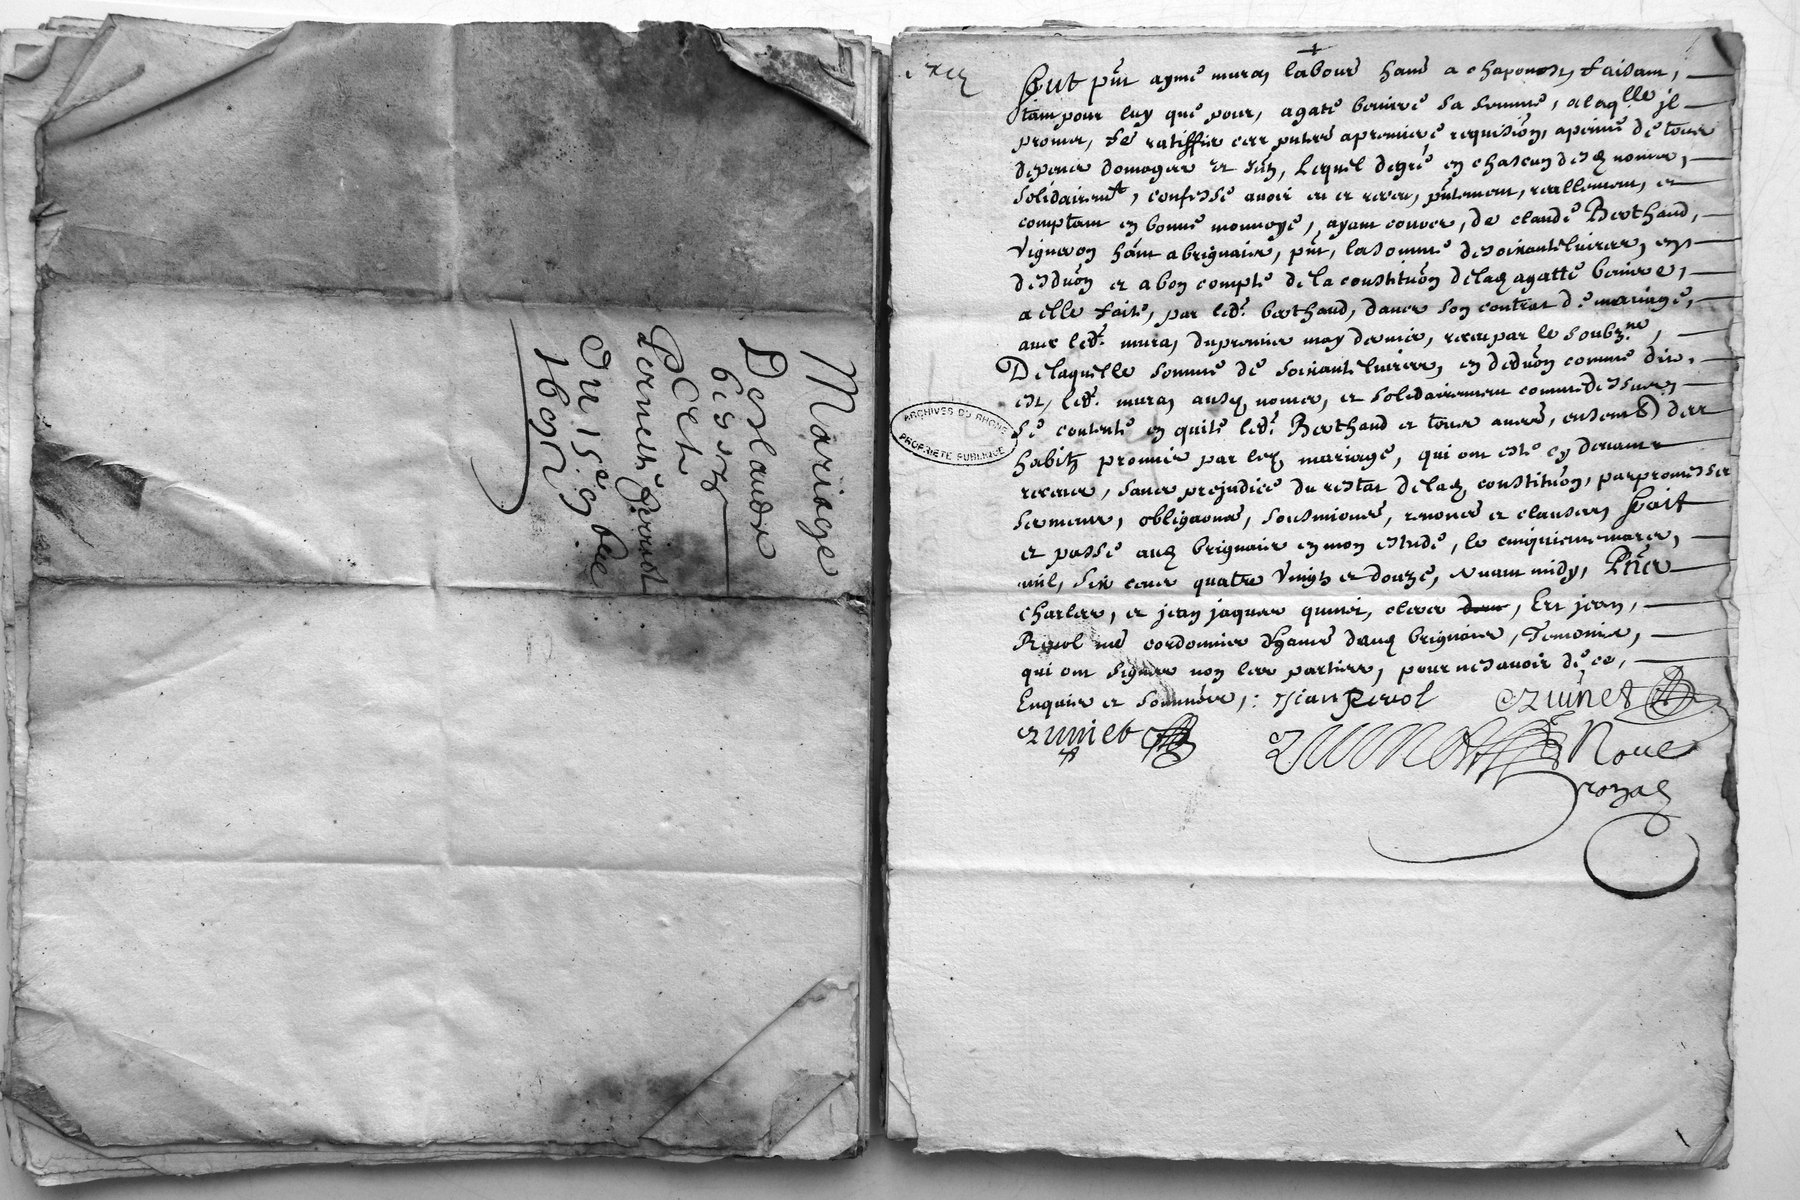 Mariage
Deslandes
et
Pernette
Du 15e 9bre
1691
fut pnt aymé muras labour hant a chaponost, faisant,
tant pour luy que pour, agatte sa femme, a laqlle jl
promet, fé ratiffier cest pntes a premiere requisiõn, a peine de tous
despens domages et Lequel de gré en chascun desd noms,
solidairemt, confesse avoir eu et receu, pntement, reallement, et
comptant en bonne monnoye, ayant cours, de claude Berthaud,
Vigneron hant a brignais, pnt, la somme de soixante livres, en
deduõn et a bon compte de la constituõn de lad agatte
a elle faite, par led. berthaud, dans son contrat de mariage,
avec led. muras, du premier may dernier, receu par le soubzne,
De laquelle somme de soixante livres, en deduõn comme dit,
est, led. muras ausd noms, et solidairement comme dessus,
se contente en quite led. Berthaud et tous autres, ensemb des
habitz promis par led mariage, qui ont esté cy devant
receus, sans prejudice du restat de lad constituõn, par promesses
serments, obligaons, sousmions, renons et clauses, fait
et passé aud brignais en mon estude, le cinquieme mars,
mil, six cens quatre vingtz et douze, avant midy, Pñs
charles, et jean jaques quinet, clercs, Et jean,
Revol me cordonnier hant aud brignais, Temoins,
qui ont signés non les parties, pour ne savoir de ce,
Enquis et sommés,: Jean Revol Quinet
Quinet Quinet Nore
royal
ARCHIVES DU RHONE
PROPRIÉTÉ PUBLIQUE